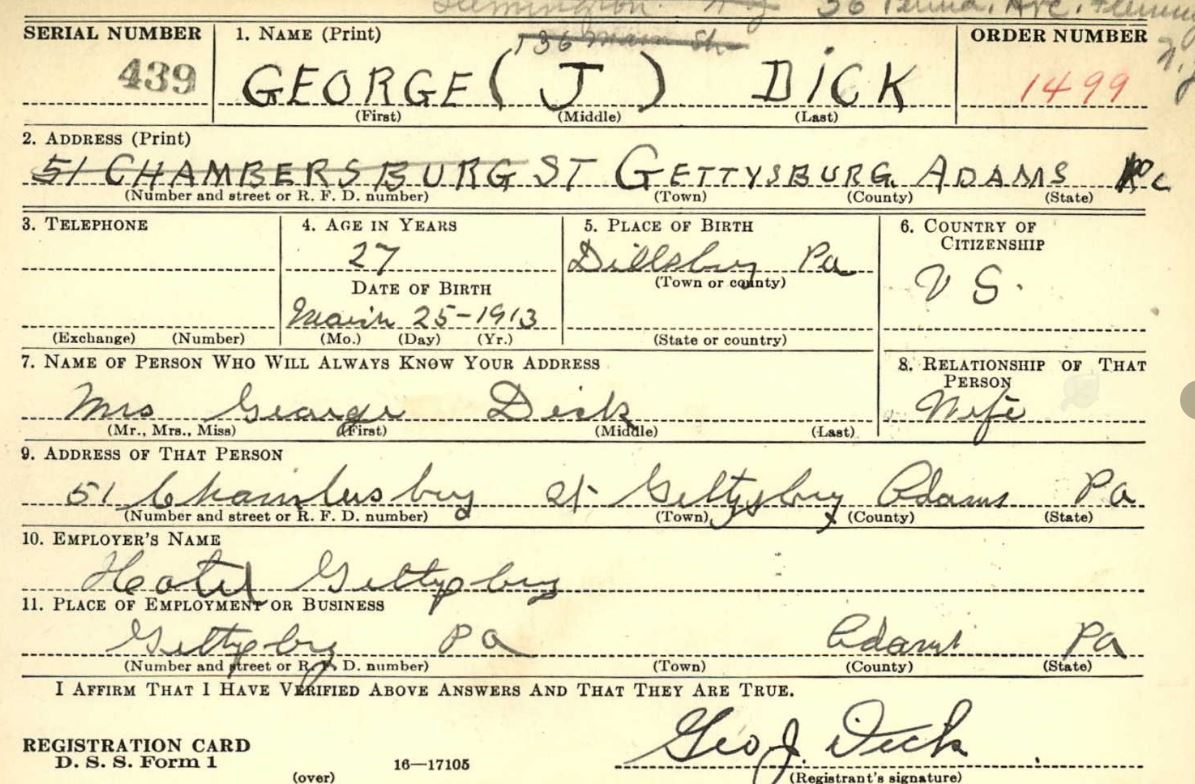 Flemington N J 56 Penna. Ave. Flemington
N.J.
136 Main St.
SERIAL NUMBER 1. NAME (Print) ORDER NUMBER
439 GEORGE ( J ) DICK 1499
(First) (Middle) (Last)
2. ADDRESS (Print)
51 CHAMBERSBURG ST GETTYSBURG ADAMS
(Number and street or R. F. D. number) (Town) (County) (State)
3. TELEPHONE 4. AGE IN YEARS 5. PLACE OF BIRTH 6. COUNTRY OF
CITIZENSHIP
27 Dillsburg Pa U S.
DATE OF BIRTH (Town or county)
March 25-1913
(Exchange) (Number) (Mo.) (Day) (Yr.) (State or country)
7. NAME OF PERSON WHO WILL ALWAYS KNOW YOUR ADDRESS 8. RELATIONSHIP OF THAT
PERSON
Mrs George Dick Wife
(Mr., Mrs., Miss) (First) (Middle) (Last)
9. ADDRESS OF THAT PERSON
51 Chambersburg St Gettysburg Adams Pa
(Number and street or R. F. D. number) (Town) (County) (State)
10. EMPLOYER'S NAME
Hotel Gettysburg
11. PLACE OF EMPLOYMENT OR BUSINESS
Gettysburg Pa Adams Pa
(Number and street or R. F. D. number) (Town) (County) (State)
I AFFIRM THAT I HAVE VERIFIED ABOVE ANSWERS AND THAT THEY ARE TRUE.
Geo J. Dick
REGISTRATION CARD
D. S. S. Form 1 16—17105
(over) (Registrant's signature)